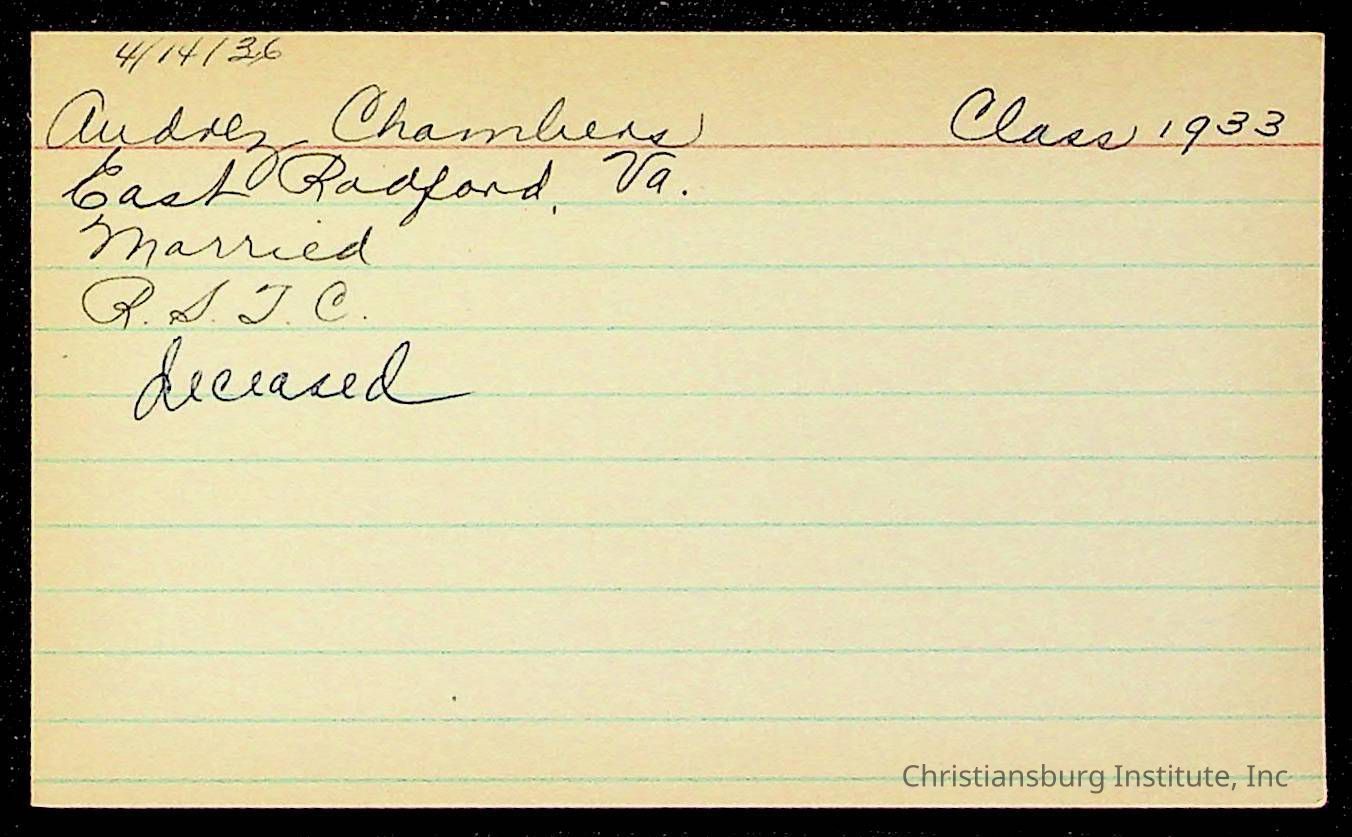 4/14/36
Audrey Chambers Class 1933
East Radford, Va.
Married
R. S. T. C.
deceased
Christiansburg Institute, Inc